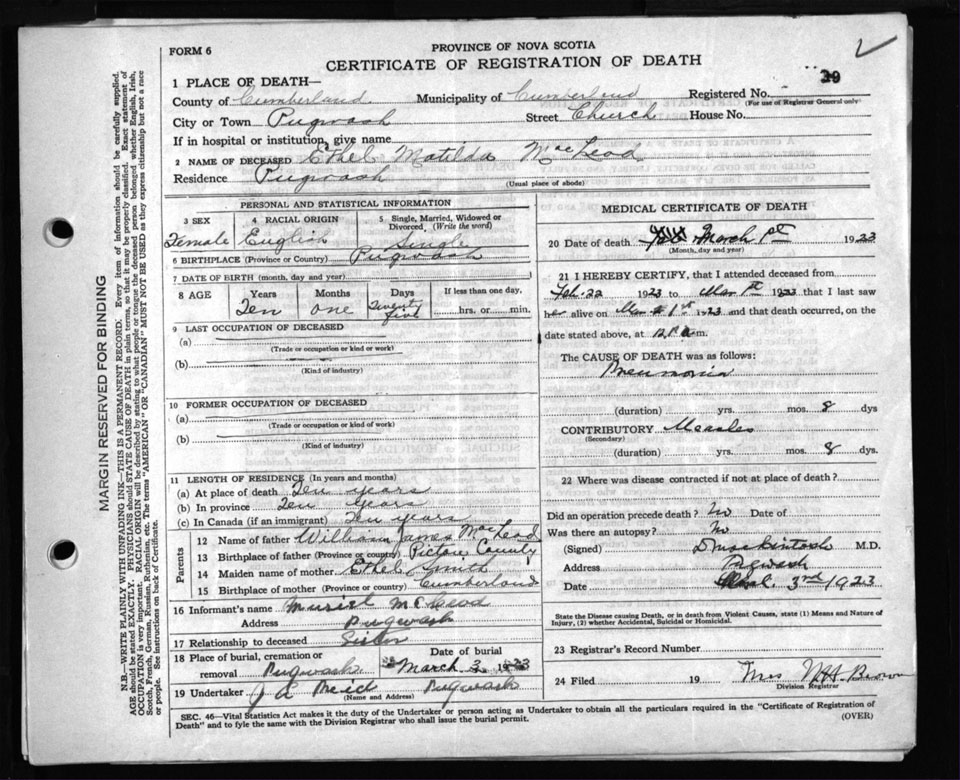 FORM 6
PROVINCE OF NOVA SCOTIA
CERTIFICATE OF REGISTRATION OF DEATH
1 PLACE OF DEATH—
County of Cumberland Municipality of Cumberland Registered No.
(For use of Registrar General only)
City or Town Pugwash Street Church House No.
If in hospital or institution, give name
2 NAME OF DECEASED Ethel Matilda MacLeod
Residence Pugwash
(Usual place of abode)
PERSONAL AND STATISTICAL INFORMATION
3 SEX 4 RACIAL ORIGIN 5 Single, Married, Widowed or Divorced, (Write the word)
Female English Single
6 BIRTHPLACE (Province or Country) Pugwash
7 DATE OF BIRTH (month, day and year)
8 AGE Years Months Days If less than one day,
Ten One Twenty five hrs. or min.
9 LAST OCCUPATION OF DECEASED
(a)
(Trade or occupation or kind or work)
(b)
(Kind of industry)
10 FORMER OCCUPATION OF DECEASED
(a)
(Trade or occupation or kind of work)
(b)
(Kind of industry)
11 LENGTH OF RESIDENCE (In years and months)
(a) At place of death Ten years
(b) In province Ten Years
(c) In Canada (if an immigrant) Ten years
Parents
12 Name of father William James MacLeod
13 Birthplace of father (Province or country) Pictou County
14 Maiden name of mother Ethel Smith
15 Birthplace of mother (Province or country) Cumberland
16 Informant's name Muriel McLeod
Address Pugwash
17 Relationship to deceased Sister
18 Place of burial, cremation or removal Pugwash Date of burial March 3 1923
19 Undertaker J A Reid Pugwash
(Name and Address)
MEDICAL CERTIFICATE OF DEATH
20 Date of death March 1st 1923
(Month, day and year)
21 I HEREBY CERTIFY, that I attended deceased from
Feb. 22 1923 to Mar 1st 1923 that I last saw
her alive on March 1st 1923 and that death occurred, on
date stated above, at m.
The CAUSE OF DEATH was as follows:
Pneumonia
(duration) yrs. mos. 8 dys
CONTRIBUTORY Measles
(Secondary)
(duration) yrs. mos. 8 dys.
22 Where was disease contracted if not at place of death?
Did an operation precede death? No Date of
Was there an autopsy? No
(Signed) D Mackintosh M.D.
Address Pugwash
Date 3rd 1923
State the Disease causing Death, or in death from Violent Causes, state (1) Means and Nature of
Injury, (2) whether Accidental, Suicidal or Homicidal.
23 Registrar's Record Number
24 Filed 19 Mrs Brown
Division Registrar
SEC. 46—Vital Statistics Act makes it the duty of the Undertaker or person acting as Undertaker to obtain all the particulars required in the "Certificate of Registration of
Death" and to fyle the same with the Division Registrar who shall issue the burial permit.
(OVER)
MARGIN RESERVED FOR BINDING
N.B.—WRITE PLAINLY WITH UNFADING INK—THIS IS A PERMANENT RECORD. Every item of information should be carefully supplied.
AGE should be stated EXACTLY. PHYSICIANS should STATE CAUSE OF DEATH in plain terms, so that it may be properly classified. Exact statement of
OCCUPATION is very important. RACIAL ORIGIN will be described by stating to what people or tongue the deceased person belonged whether English, Irish,
Scotch, French, German, Russian, Ruthenian, etc. The terms "AMERICAN" OR "CANADIAN" MUST NOT BE USED as they express citizenship but not a race
or people. See instructions on back of Certificate.